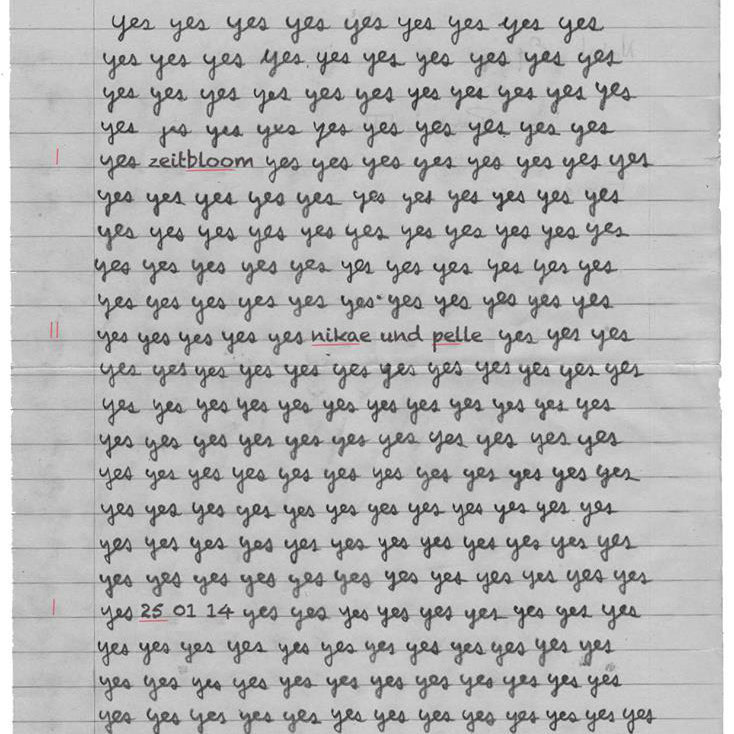 yes yes yes yes yes yes yes yes yes
yes yes yes yes yes yes yes yes yes yes
yes yes yes yes yes yes yes yes yes yes yes
yes yes yes yes yes yes yes yes yes yes
I yes zeitbloom yes yes yes yes yes yes yes yes
yes yes yes yes yes yes yes yes yes yes yes
yes yes yes yes yes yes yes yes yes yes yes
yes yes yes yes yes yes yes yes yes yes yes
yes yes yes yes yes yes yes yes yes yes yes
II yes yes yes yes yes nikae und pelle yes yes yes
yes yes yes yes yes yes yes yes yes yes yes yes
yes yes yes yes yes yes yes yes yes yes yes yes
yes yes yes yes yes yes yes yes yes yes yes
yes yes yes yes yes yes yes yes yes yes yes yes
yes yes yes yes yes yes yes yes yes yes yes yes
yes yes yes yes yes yes yes yes yes yes yes yes
yes yes yes yes yes yes yes yes yes yes yes yes
I yes 25 01 14 yes yes yes yes yes yes yes yes yes
yes yes yes yes yes yes yes yes yes yes yes yes
yes yes yes yes yes yes yes yes yes yes yes yes
yes yes yes yes yes yes yes yes yes yes yes yes yes